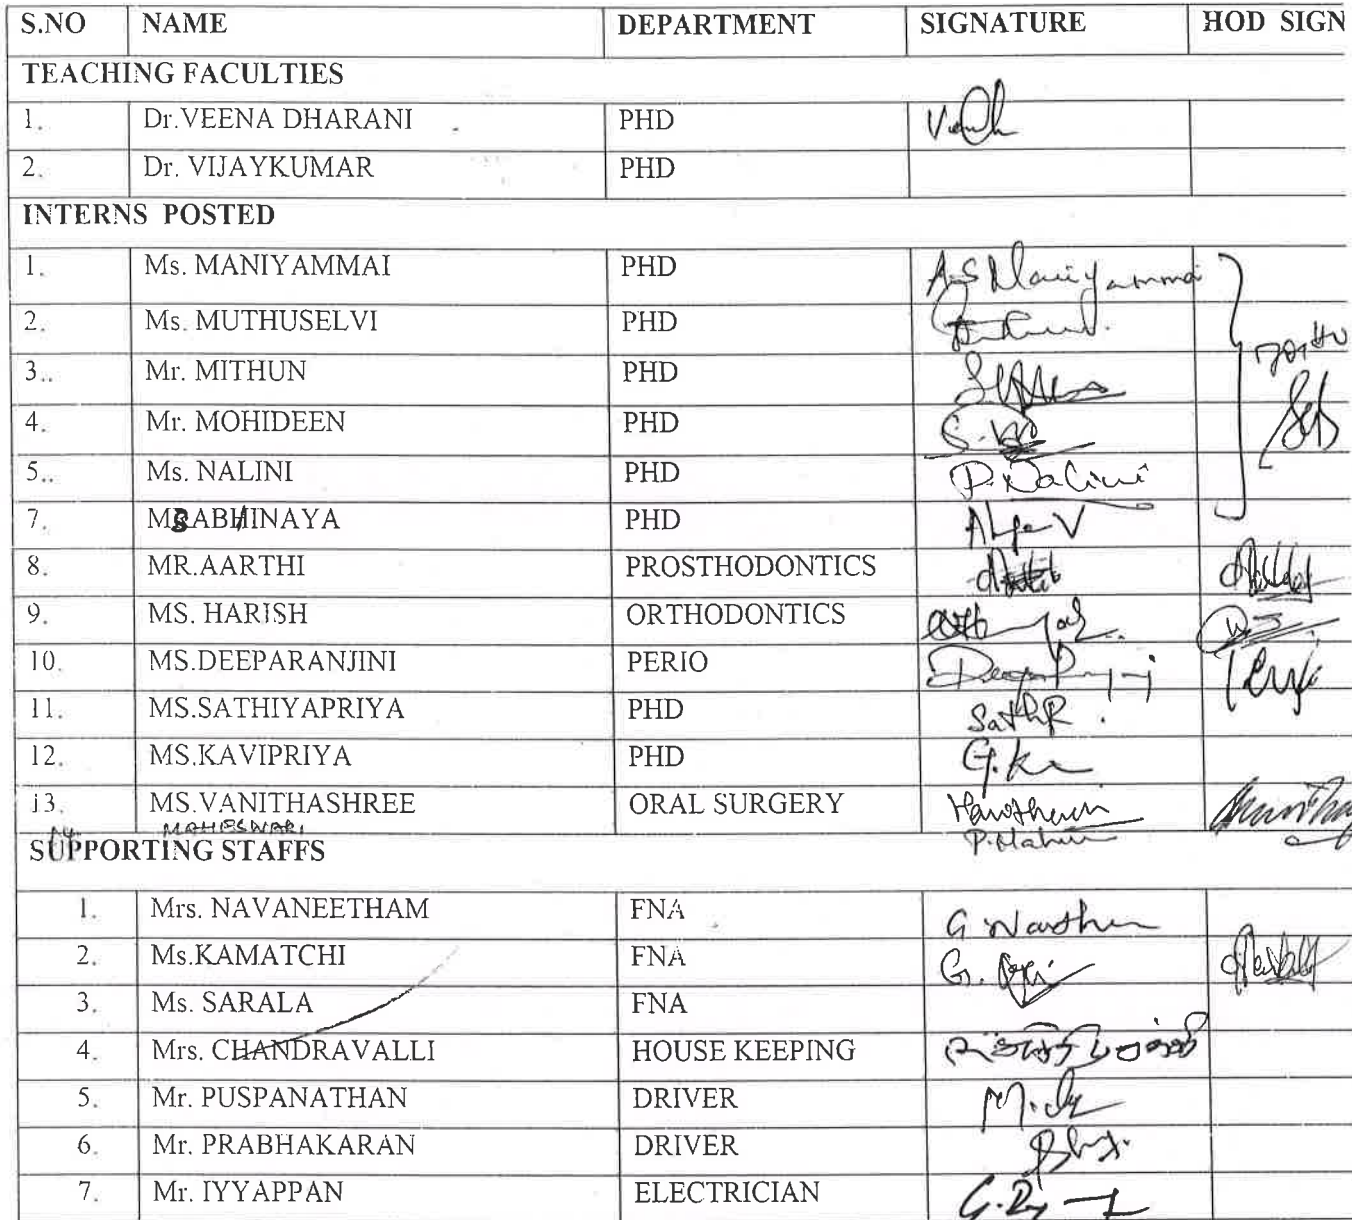 S.NO NAME DEPARTMENT SIGNATURE HOD SIGN
TEACHING FACULTIES
1. Dr.VEENA DHARANI PHD
2. Dr. VIJAYKUMAR PHD
INTERNS POSTED
1. Ms. MANIYAMMAI PHD A.S Maniyammai
2. Ms. MUTHUSELVI PHD
3.. Mr. MITHUN PHD
4. Mr. MOHIDEEN PHD
5.. Ms. NALINI PHD P. Nalini
7. MSABHINAYA PHD
8. MR.AARTHI PROSTHODONTICS
9. MS. HARISH ORTHODONTICS
10. MS.DEEPARANJINI PERIO
11. MS.SATHIYAPRIYA PHD
12. MS.KAVIPRIYA PHD
13. MS.VANITHASHREE ORAL SURGERY
14. MAHESWARI
SUPPORTING STAFFS
1. Mrs. NAVANEETHAM FNA
2. Ms.KAMATCHI FNA
3. Ms. SARALA FNA
4. Mrs. CHANDRAVALLI HOUSE KEEPING
5. Mr. PUSPANATHAN DRIVER
6. Mr. PRABHAKARAN DRIVER
7. Mr. IYYAPPAN ELECTRICIAN